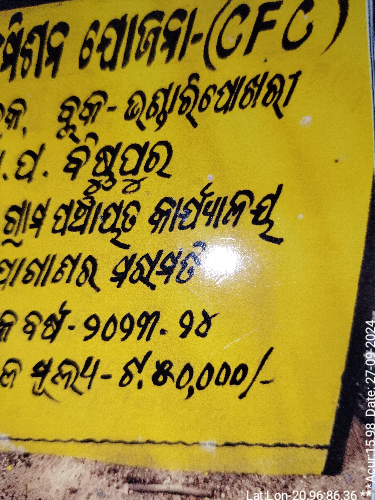 ମିଶନ ଯୋଜନା-(CFC)
ବ୍ଲକ- ଭଣ୍ଡାରିପୋଖରୀ
ପ. ବିଷ୍ଣୁପୁର
ଗ୍ରାମ ପଞ୍ଚାୟତ କାର୍ଯ୍ୟାଳୟ
ମରାମତି
ବର୍ଷ - ୨୦୨୩-୨୪
ମୂଲ୍ୟ - ଟ.୫୦,୦୦୦/-
Lat Lon-20.96.86.36
Acur 15.98 Date: 27-09-2024